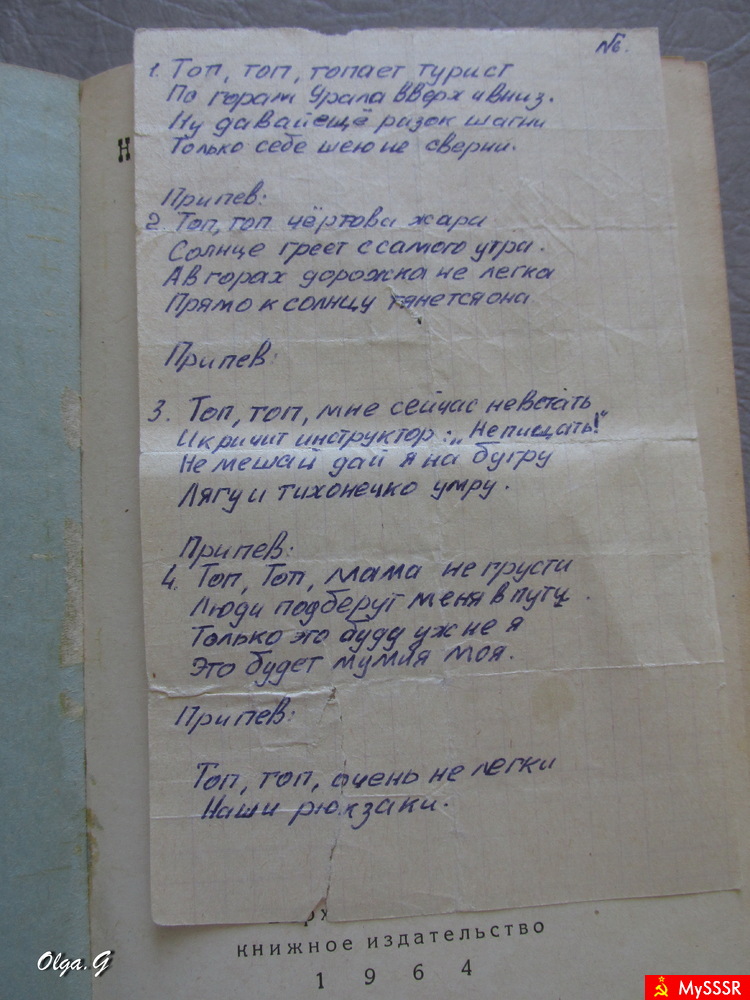 №6.
1. Топ, топ, топает турист
По горам Урала вверх и вниз.
Ну давай ещё разок шагни
Только себе шею не сверни.
Н
Припев:
2. Топ, топ чёртова жара
Солнце греет с самого утра.
А в горах дорожка не легка
Прямо к солнцу тянется она
Припев:
3. Топ, топ, мне сейчас не встать
И кричит инструктор: „Не пищать!"
Не мешай дай я на бугру
Лягу и тихонечко умру.
Припев:
4. Топ, Топ, мама не грусти
Люди подберут меня в пути.
Только это буду уж не я
Это будет мумия моя.
Припев:
Топ, топ, очень не легки
Наши рюкзаки.
книжное издательство
1964
Olga.G
MySSSR